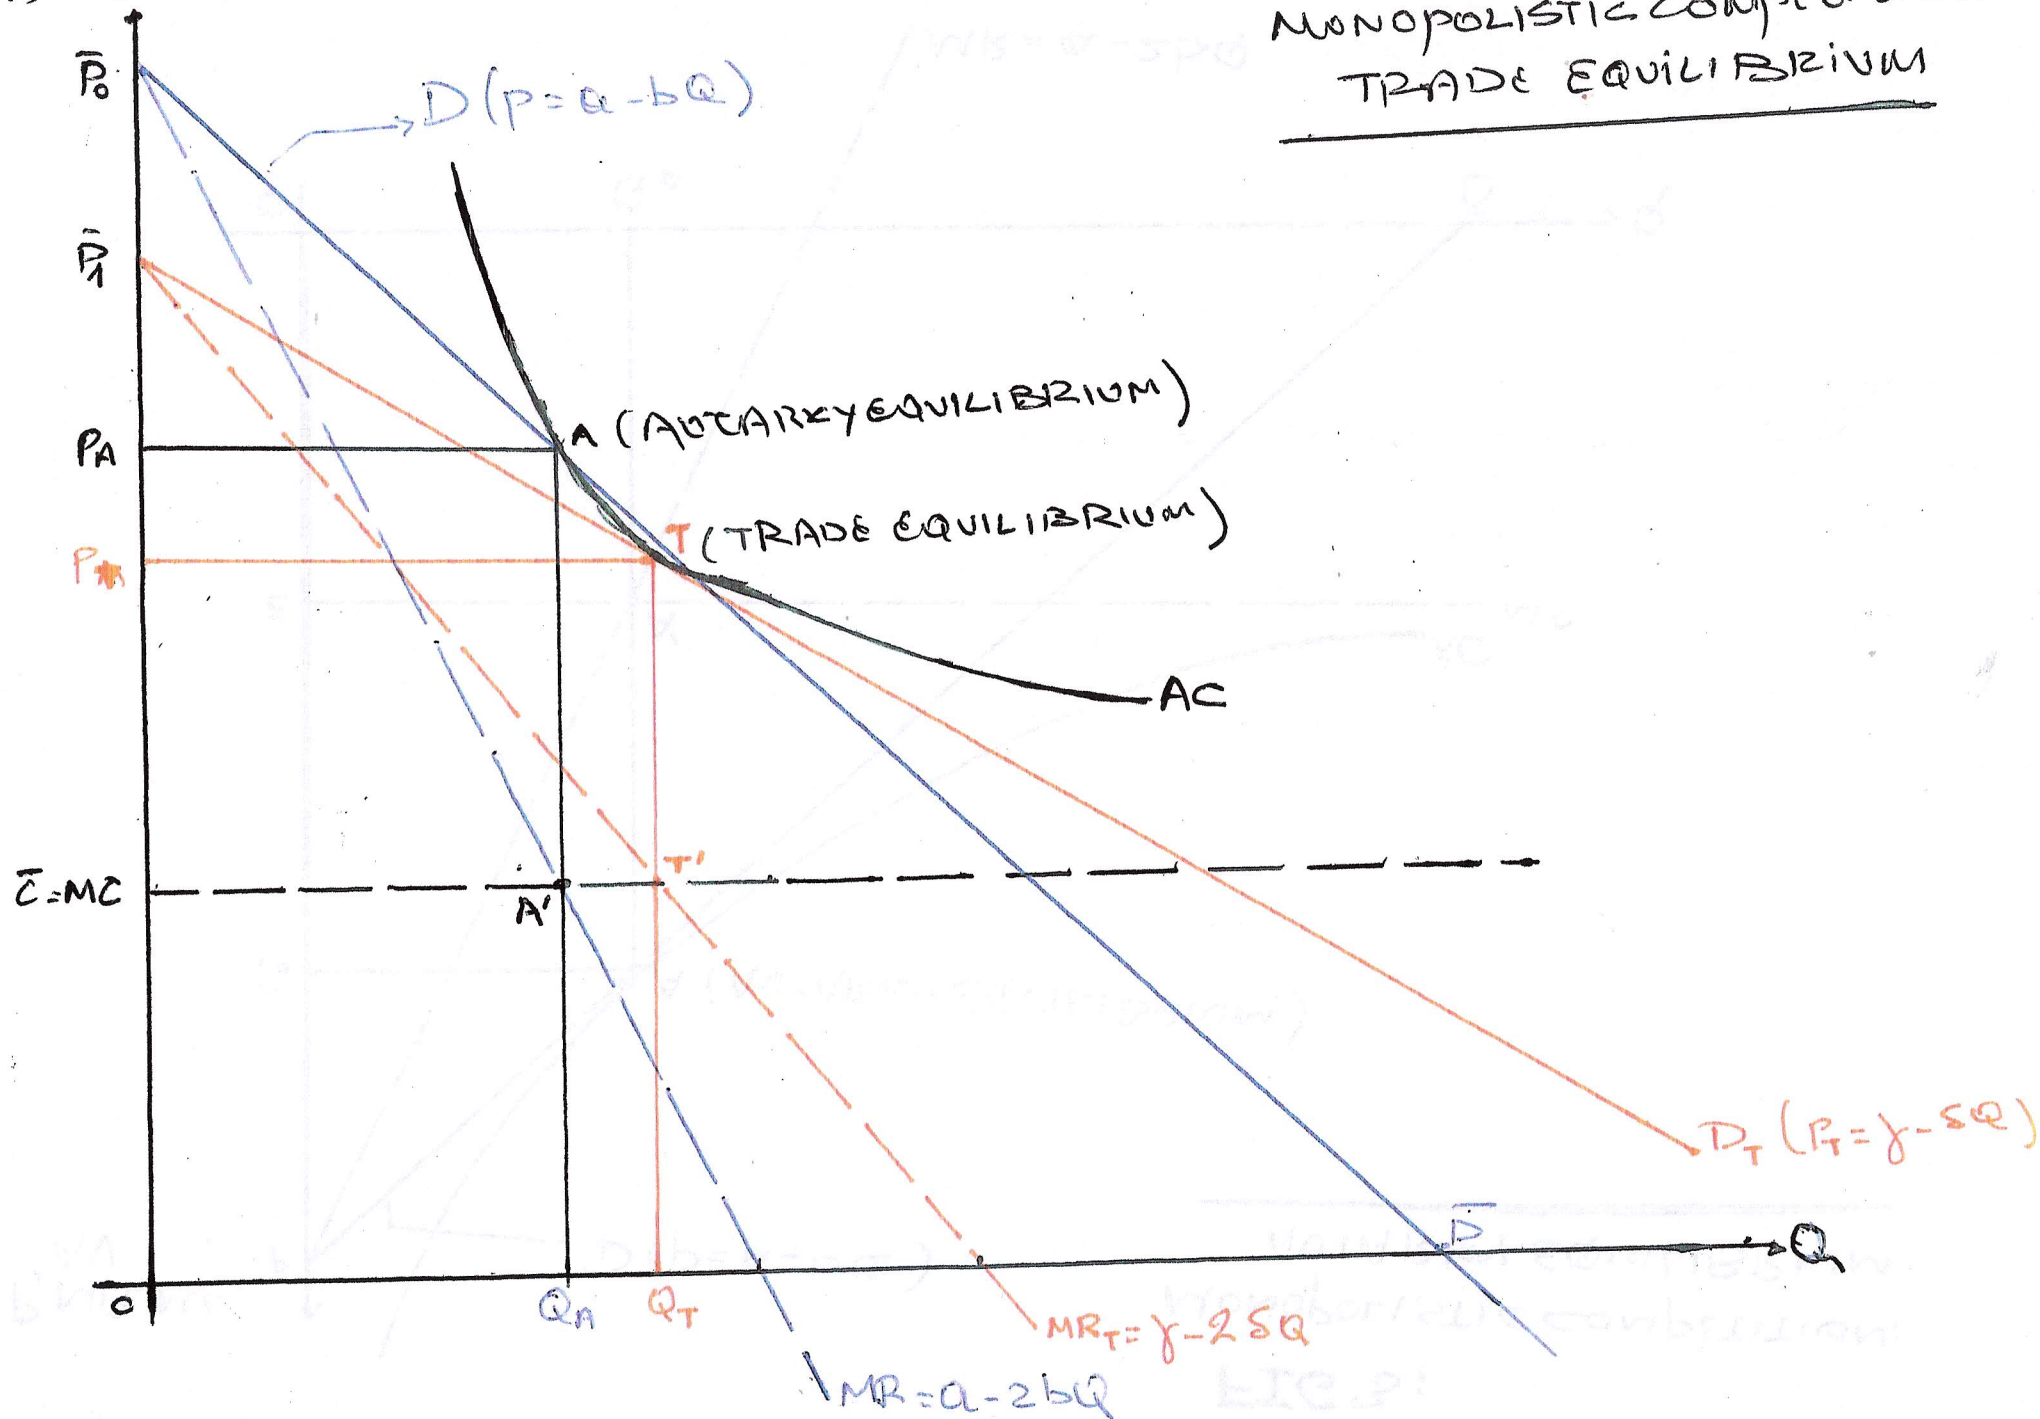 MONOPOLISTIC
TRADE EQUILIBRIUM
P̄₀
D(P=a-bQ)
P̄₁
A (AUTARKY EQUILIBRIUM)
P_A
T (TRADE EQUILIBRIUM)
P
AC
C̄=MC
A'
T'
D_T (P_T=γ-δQ)
D̄
Q
0
Q_A
Q_T
MR_T=γ-2δQ
MR=a-2bQ